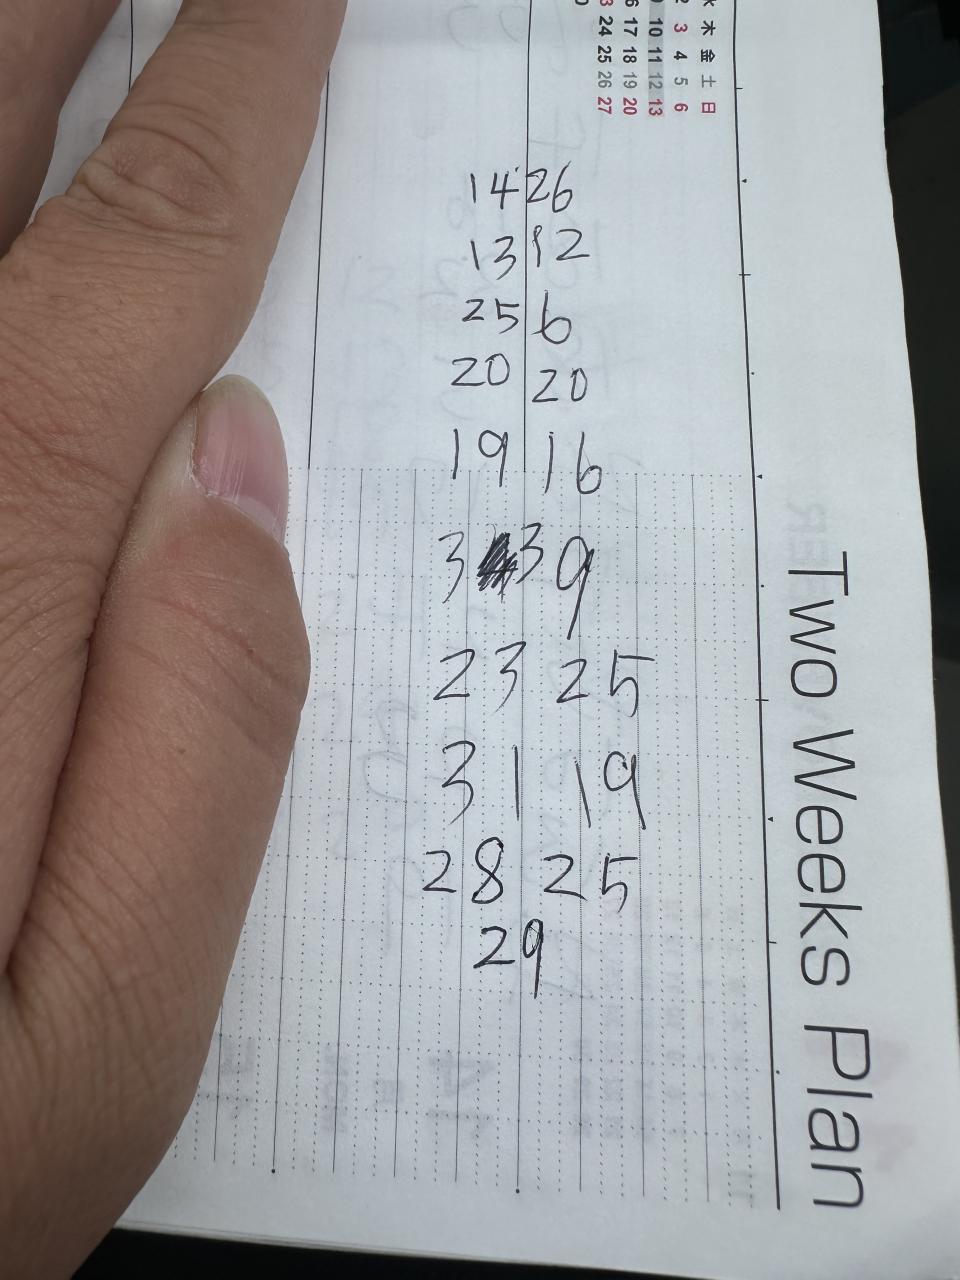 水 木 金 土 日
2 3 4 5 6
9 10 11 12 13
6 17 18 19 20
3 24 25 26 27
14 26
13 12
25 6
20 20
19 16
3 39
23 25
31 19
28 25
29
Two Weeks Plan